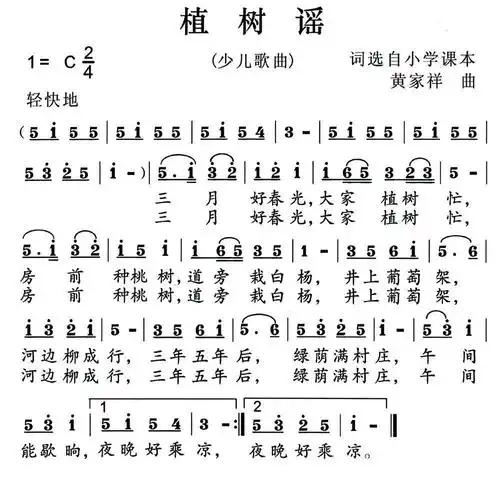 植树谣
1 = C 2/4
(少儿歌曲)
词选自小学课本
黄家祥 曲
轻快地
( 5 i 5 5 | i 5 i 5 5 | 5 i 5 4 | 3 - | 5 i 5 5 | i 5 i 5 5 |
5 3 2 5 | i - ) | 5. i 3 2 | i 2 i | i 6 5 3 2 3 | 5 - |
三 月 好春光,大家 植树 忙,
三 月 好春光,大家 植树 忙,
5. i 3 2 | i 2 i | i 6 5 3 5 | i - | 2 3 2 i 2 | 5. 6 |
房 前 种桃树,道旁 栽白杨, 井上葡萄架,
房 前 种桃树,道旁 栽白杨, 井上葡萄架,
i 3 2 i | 2 - | 3 3 5 i | 2 - | i 2 i 2 | 5. 6 | 5 3 i |
河边柳成行, 三年五年后, 绿荫满村庄, 午 间
河边柳成行, 三年五年后, 绿荫满村庄, 午 间
1 2
5 3 i | 5 i 5 4 | 3 - :| 5 3 2 5 | i - ||
能歇晌,夜晚好乘凉, 夜晚好乘 凉。